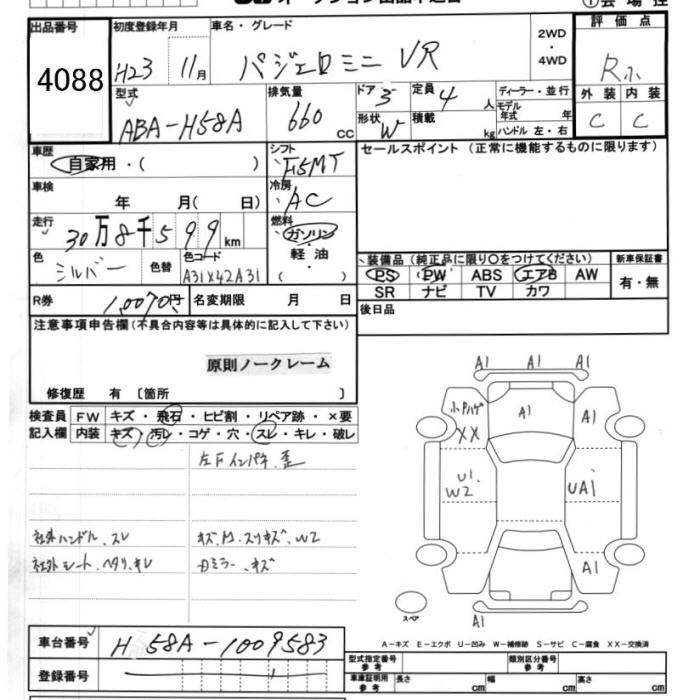 出品番号
4088
初度登録年月
H23 11月
車名・グレード
パジェロミニ VR
2WD
・
4WD
評価点
R
外装 内装
C C
型式
ABA-H58A
排気量
660 cc
ドア 3
定員 4 人
形状 W
積載 kg
ディーラー・並行
モデル年式 年
ハンドル 左・右
車歴
自家用・( )
シフト
F5MT
セールスポイント (正常に機能するものに限ります)
車検
年 月( 日)
冷房
AC
走行
30万8千599km
燃料
ガソリン
軽・油
( )
色
シルバー
色替
色コード
A31X42A31
装備品 (純正品に限り○をつけてください)
PS PW ABS エアB AW
SR ナビ TV カワ
新車保証書
有・無
R券
10070円
名変期限 月 日
後日品
注意事項申告欄 (不具合内容等は具体的に記入して下さい)
原則ノークレーム
修復歴 有 〔箇所 〕
検査員記入欄
FW キズ・飛石・ヒビ割・リペア跡・×要
内装 キズ・汚レ・コゲ・穴・スレ・キレ・破レ
左Fインパネ、歪
社外ハンドル、スレ
社外シート、ヘタリ、キレ
W2
ミラー、キズ
A1 A1 A1
A1
A1
XX
U1
W2
UA1
A1
スペア
A1
A-キズ E-エクボ U-凹み W-補修跡 S-サビ C-腐食 XX-交換済
車台番号
H58A-1009583
登録番号
型式指定番号 参考
類別区分番号 参考
車庫証明用 参考
長さ cm
幅 cm
高さ cm